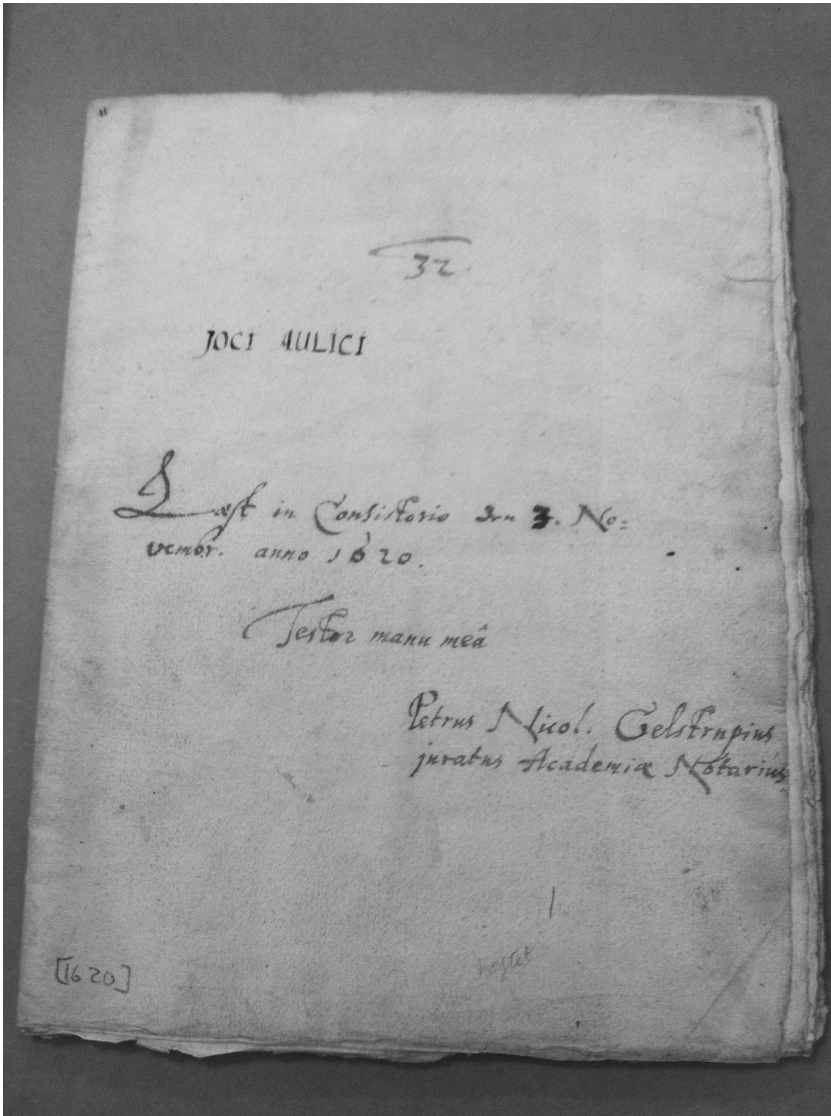 32.
JOCI AULICI
Læst in Consistorio den 3. No=
vembr. anno 1620.
Testor manu meâ
Petrus Nicol. Gelstrupius
juratus Academiæ Notarius
[1620]